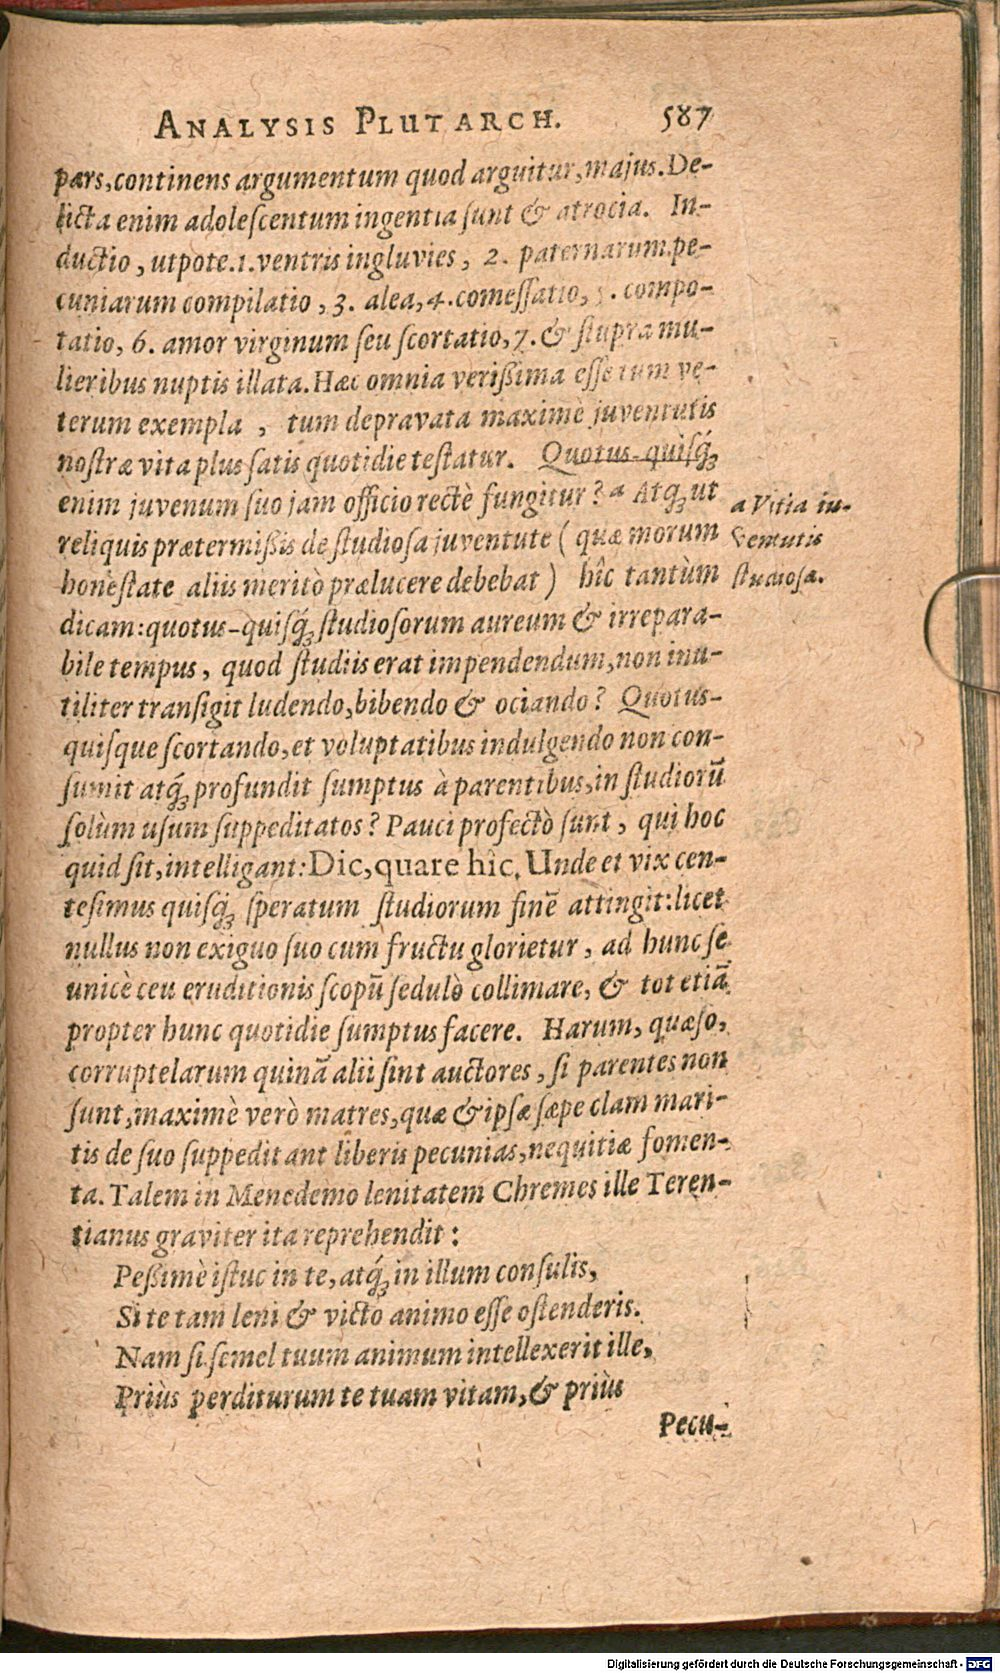 ANALYSIS PLUTARCH. 587
pars, continens argumentum quod arguitur, majus. De-
licta enim adolescentum ingentia sunt & atrocia. In-
ductio, utpote. 1. ventris ingluvies, 2. paternarum pe-
cuniarum compilatio, 3. alea, 4. comessatio, 5. compo-
tatio, 6. amor virginum seu scortatio, 7. & stupra mu-
lieribus nuptis illata. Hæc omnia verißima esse tum ve-
terum exempla, tum depravata maximè juventutis
nostræ vita plus satis quotidie testatur. Quotus-quisq́ꝫ
enim juvenum suo jam officio rectè fungitur? a Atq́ꝫ ut
reliquis prætermißis de studiosa juventute (quæ morum
honestate aliis meritò prælucere debebat) hîc tantùm
dicam: quotus-quisq́ꝫ studiosorum aureum & irrepara-
bile tempus, quod studiis erat impendendum, non inu-
tiliter transigit ludendo, bibendo & ociando? Quotus-
quisque scortando, et voluptatibus indulgendo non con-
sumit atq́ꝫ profundit sumptus à parentibus, in studiorū
solùm usum suppeditatos? Pauci profectò sunt, qui hoc
quid sit, intelligant: Dic, quare hîc. Unde et vix cen-
tesimus quisq́ꝫ speratum studiorum finē attingit: licet
nullus non exiguo suo cum fructu glorietur, ad hunc se
unicè ceu eruditionis scopū sedulò collimare, & tot etiā
propter hunc quotidie sumptus facere. Harum, quæso,
corruptelarum quinā alii sint auctores, si parentes non
sunt, maximè verò matres, quæ & ipsæ sæpe clam mari-
tis de suo suppeditant liberis pecunias, nequitiæ fomen-
ta. Talem in Menedemo lenitatem Chremes ille Teren-
tianus graviter ita reprehendit:
Peßimè istuc in te, atq́ꝫ in illum consulis,
Si te tam leni & victo animo esse ostenderis.
Nam si semel tuum animum intellexerit ille,
Priùs perditurum te tuam vitam, & priùs
Pecu-
a Vitia iu-
ventutis
studiosæ.
Digitalisierung gefördert durch die Deutsche Forschungsgemeinschaft - DFG